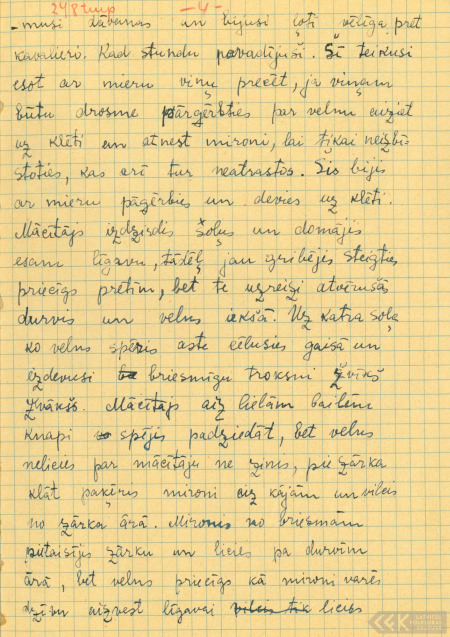 248 turp
- 4 -
- musi dāvanas un bijusi ļoti vēlīga pret
kavalieri. Kad stundu pavadījuši. Šī teikusi
esot ar mieru viņu precēt, ja viņam
būtu drosme pārģērbties par velnu aiziet
uz klēti un atnest mironi, lai tikai neizbīs
stoties, kas arī tur neatrastos. Šis bijis
ar mieru pāģērbies un devies uz klēti.
Mācītājs izdzirdis soļus un domājis
esam līgavu, tādēļ jau gribējis steigties
priecīgs pretīm, bet te uzreizi atvērušās
durvis un velns iekšā. Uz katra soļa
ko velns spēris aste cēlusies gaisā un
izdevusi briesmīgu troksni žvīkš
žvākš. Mācītājs aiz lielām bailēm
knapi spējis padziedāt, bet velns
nelicies par mācītāju ne zinis, pie zārka
klāt paķēris mironi aiz kājām un vilcis
no zārka ārā. Mironis no briesmām
pietaisījis zārku un licies pa durvīm
ārā, bet velns priecīgs kā mironi varēs
dzīvu aizvest līgavai licies
LATVIEŠU
FOLKLORAS
KRĀTUVE